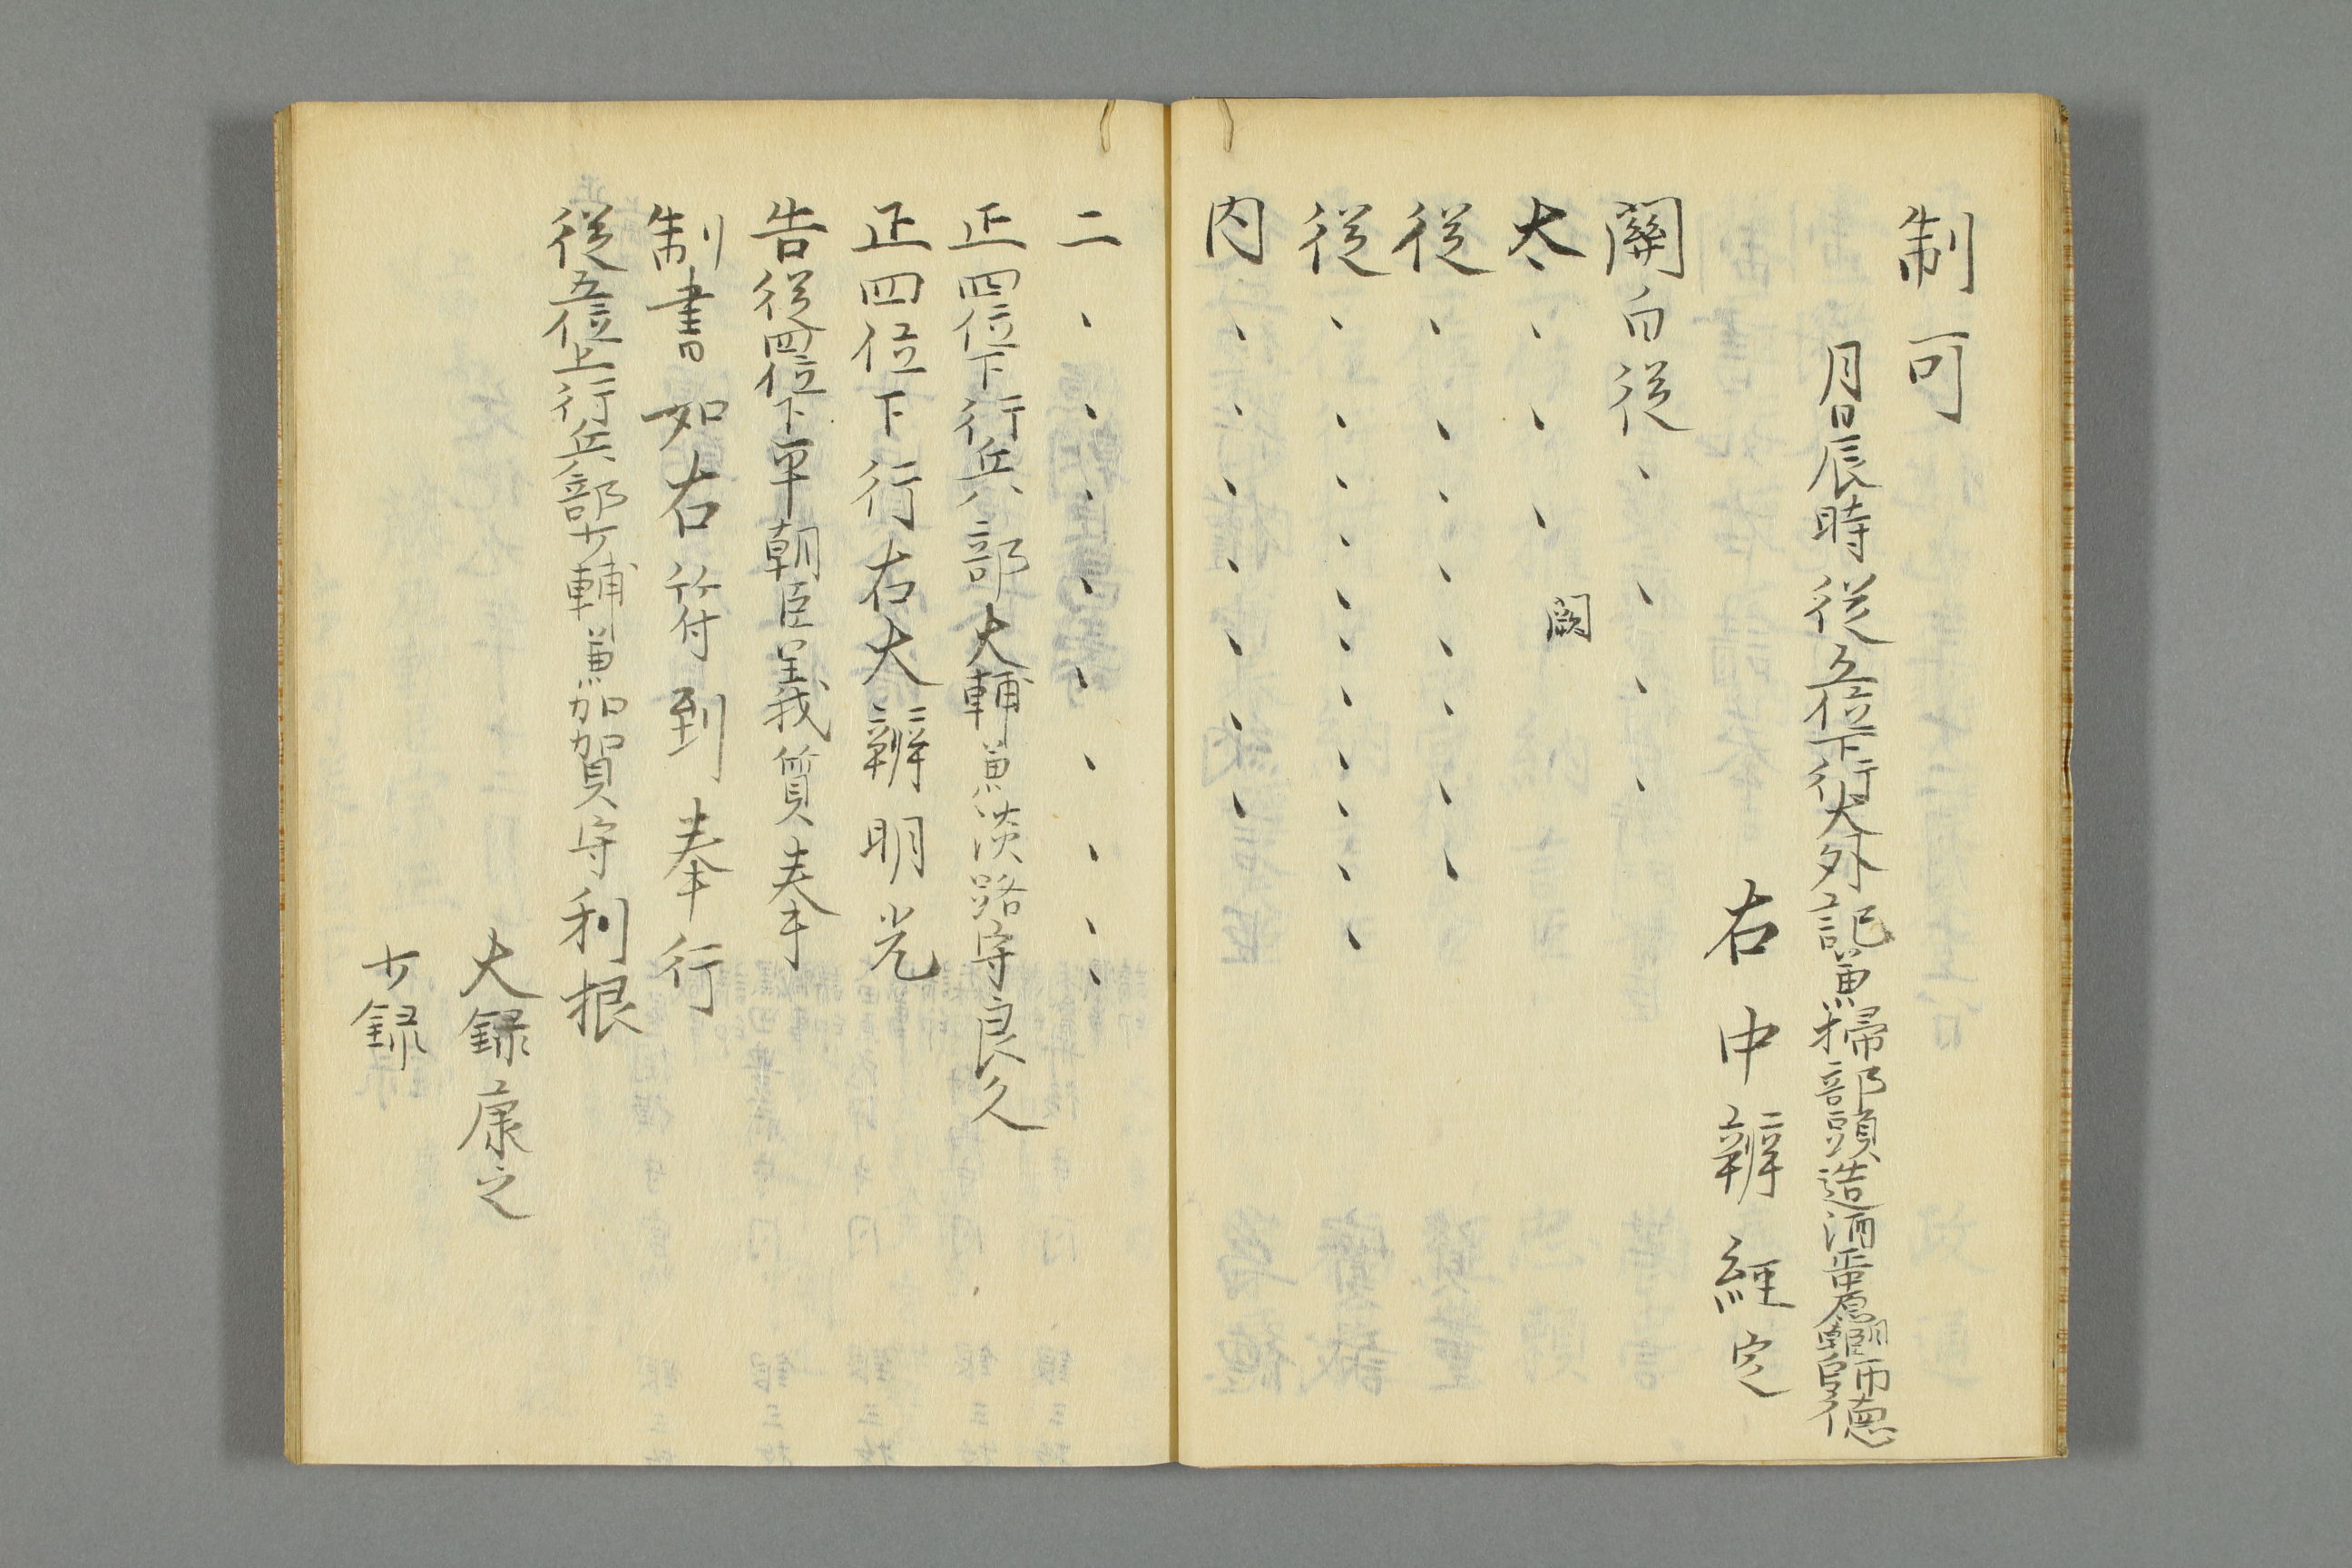 制可
月日辰時従五位下行大外記兼掃部頭造酒正中原朝臣師德
右中辨經定
關白従、、、、
太、、、闕
従、、、、、、、
従、、、、、、、、、、
内、、、、、、、
二、、、、、、、、
正四位下行兵部大輔兼淡路守良久
正四位下行右大辨明光
告従四位下平朝臣義質奉
制書如右符到奉行
従五位上行兵部少輔兼加賀守利根
大録康之
少録